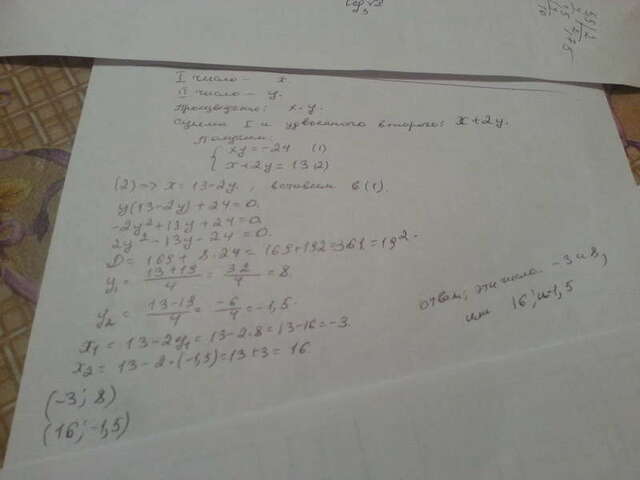 I число – x.
II число – y.
Произведение: x·y.
Сумма I и удвоенного второго: x+2y.
Получим:
{ xy=-24 (1)
{ x+2y=13 (2)
(2) => x=13-2y, вставим в (1).
y(13-2y)+24=0.
-2y²+13y+24=0.
2y²-13y-24=0.
D=169+8·24=169+192=361=19².
y₁=(13+19)/4=32/4=8
y₂=(13-19)/4=-6/4=-1,5.
x₁=13-2y₁=13-2·8=13-16=-3.
x₂=13-2·(-1,5)=13+3=16.
(-3; 8)
(16; -1,5)
ответ: эти числа -3 и 8,
или 16 и -1,5